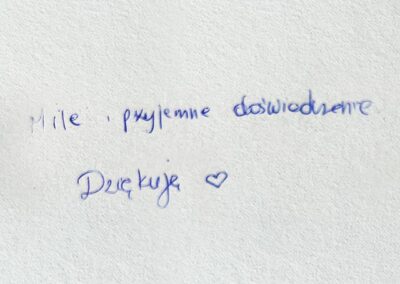 Miłe i przyjemne doświadczenie
Dziękuję ♡